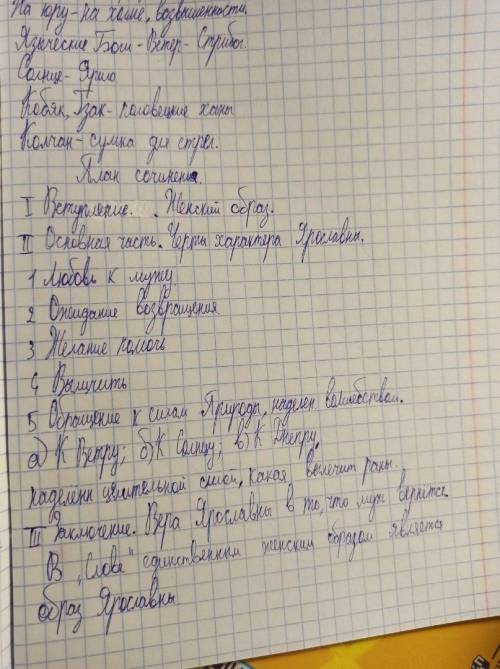 На юру - на холме, возвышенности.
Языческие Боги - Ветер - Стрибог.
Солнце - Ярило
Кобяк, Гзак - половецкие ханы
Колчан - сумка для стрел.
План сочинения.
I Вступление. Женский образ.
II Основная часть. Черты характера Ярославны.
1 Любовь к мужу
2 Ожидание возвращения
3 Желание помочь
4 Вылечить
5 Обращение к силам Природы, наделен волшебством.
а) К Ветру; б) К Солнцу; в) К Днепру,
наделенн целительной силой, какая вылечит раны.
III Заключение. Вера Ярославны в то, что муж вернётся.
В „Слове" единственным женским образом является
образ Ярославны